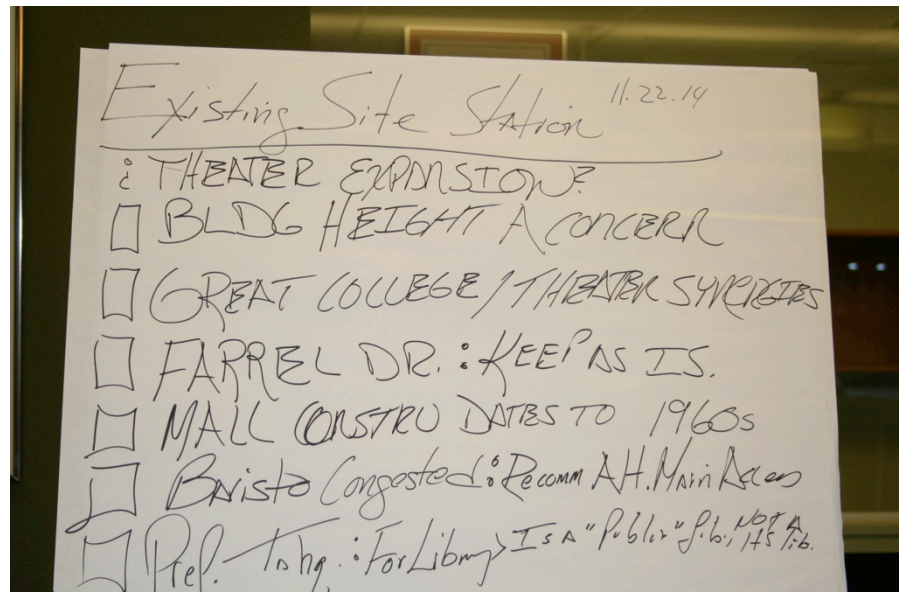 Existing Site Station 11.22.14
¿ THEATER EXPANSION?
BLDG HEIGHT A CONCERN
GREAT COLLEGE / THEATER SYNERGIES
FARREL DR. : KEEP AS IS.
MALL CONSTRU DATES TO 1960s
Baristo Congested : Recomm Alt. Main Access
Pref. Tahq. : For Library> Is A "Public" Lib., NOT A Lib.